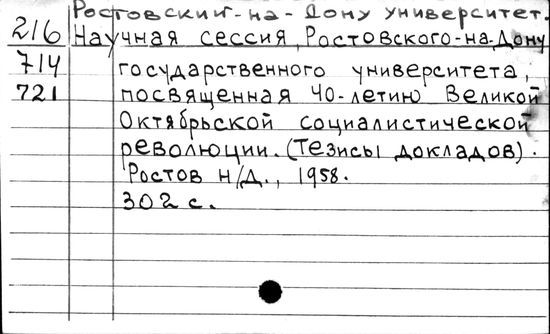 Ростовский-на-Дону университет.
216 Научная сессия, Ростовского-на-Дону
714 государственного университета,
721 посвященная 40-летию Великой
Октябрьской социалистической
революции. (Тезисы докладов).
Ростов н/Д., 1958.
302 с.